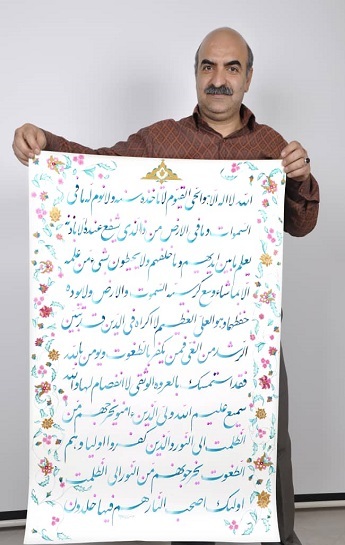 الله لا اله الا هو الحی القیوم لا تاخذه سنه و لا نوم له ما فی
السموات و ما فی الارض من ذالذی یشفع عنده الا باذنه
یعلم ما بین ایدیهم و ما خلفهم و لا یحیطون بشیء من علمه
الا بما شاء وسع کرسیه السموت والارض و لا یوده
حفظهما و هو العلی العظیم لا اکراه فی الدین قد تبین
الرشد من الغی فمن یکفر بالطغوت و یومن بالله
فقد استمسک بالعروه الوثقی لا انفصام لها والله
سمیع علیم الله ولی الذین امنو یخرجهم من
الظلمت الی النور والذین کفروا اولیاوهم
الطغوت یخرجونهم من النور الی الظلمت
اولئک اصحب النار هم فیها خلدون